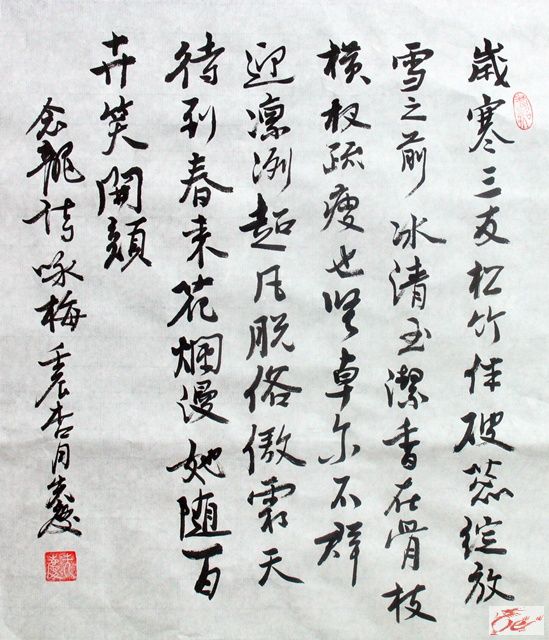 歲寒三友松竹伴破蕊綻放
雪之前冰清玉潔香在骨枝
横杈疏瘦也坚卓尔不群
迎凛冽超凡脱俗傲霜天
待到春来花爛漫她随百
卉笑開顔
念龍诗咏梅 壬辰杏月